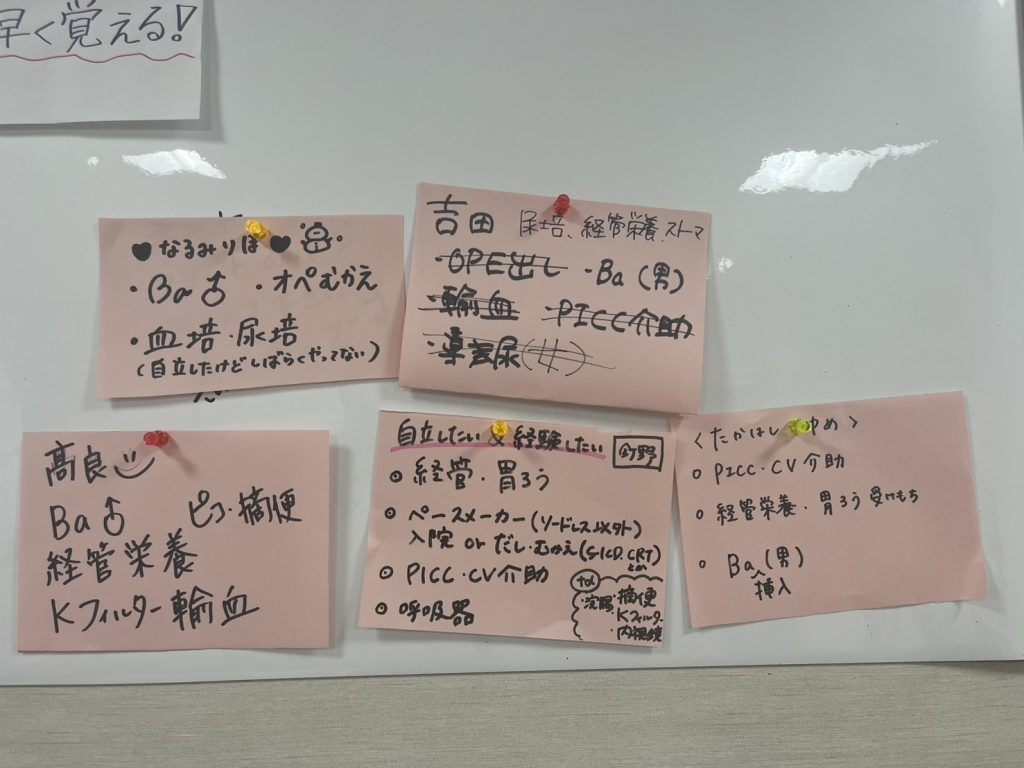 早く覚える!
♥なるみりほ♥
・Ba♂ ・オペむかえ
・血培・尿培
(自立したけどしばらくやってない)
吉田 尿培、経管栄養、ストマ
・OPE出し ・Ba(男)
・輸血 ・PICC介助
・導尿(女)
高良
Ba♂ ピコ・摘便
経管栄養
Kフィルター輸血
自立したい & 経験したい
・経管・胃ろう
・ペースメーカー(リードレス以外)
入院 or だし・むかえ(SICD, CRTとか)
・PICC・CV介助
・呼吸器
・浣腸・摘便
・Kフィルター
・内視鏡
<たかはし ゆめ>
○ PICC・CV介助
○ 経管栄養・胃ろう 受けもち
○ Ba(男)
挿入